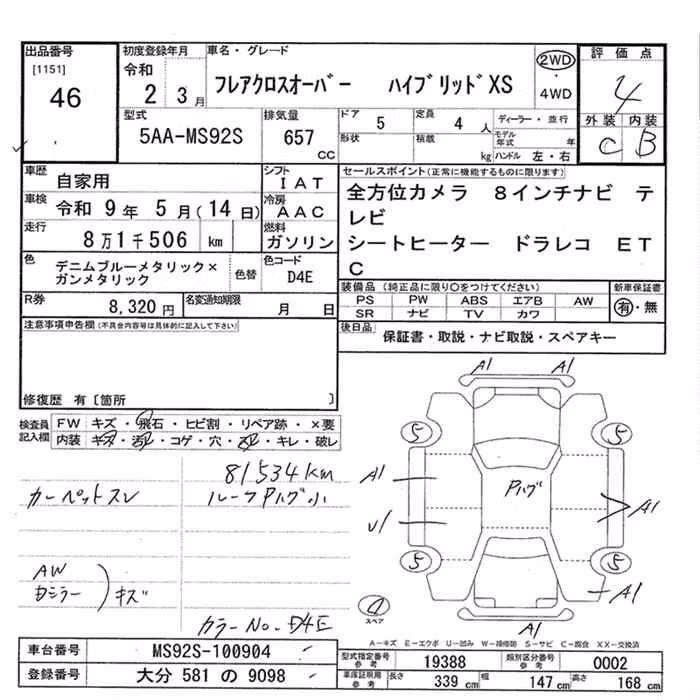 出品番号
[1151]
46
初度登録年月
令和
2 3月
車名・グレード
フレアクロスオーバー ハイブリッドXS
2WD
・
4WD
評価点
4
外装 内装
C B
型式
5AA-MS92S
排気量
657
CC
ドア
5
定員
4 人
形状
積載
kg
ディーラー・並行
モデル年式 年
ハンドル 左・右
車歴
自家用
シフト
IAT
車検
令和 9年 5月(14日)
冷房
AAC
走行
8万1千506 km
燃料
ガソリン
色
デニムブルーメタリック×
ガンメタリック
色替
色コード
D4E
R券
8,320円
名変通知期限
月 日
セールスポイント(正常に機能するものに限ります)
全方位カメラ 8インチナビ テ
レビ
シートヒーター ドラレコ ET
C
装備品(純正品に限り○をつけてください)
PS PW ABS エアB AW
SR ナビ TV カワ
新車保証書
有・無
後日品
保証書・取説・ナビ取説・スペアキー
注意事項申告欄(不具合内容等は具体的に記入して下さい)
修復歴 有〔箇所 〕
検査員
記入欄
FW キズ・飛石・ヒビ割・リペア跡・×要
内装 キズ・汚れ・コゲ・穴・スレ・キレ・破レ
81534km
カーペットスレ
ルーフPハグ小
AW
カミラー
キズ
カラーNo.D4E
A1 A1
5 5
A1
Pハグ
A1
U1
5 5
A1
スペア
A1
A-キズ E-エクボ U-凹み W-補修跡 S-サビ C-腐食 XX-交換済
車台番号
MS92S-100904
登録番号
大分 581 の 9098
型式指定番号
参考
19388
類別区分番号
参考
0002
車庫証明用
参考
長さ 339 cm
幅 147 cm
高さ 168 cm